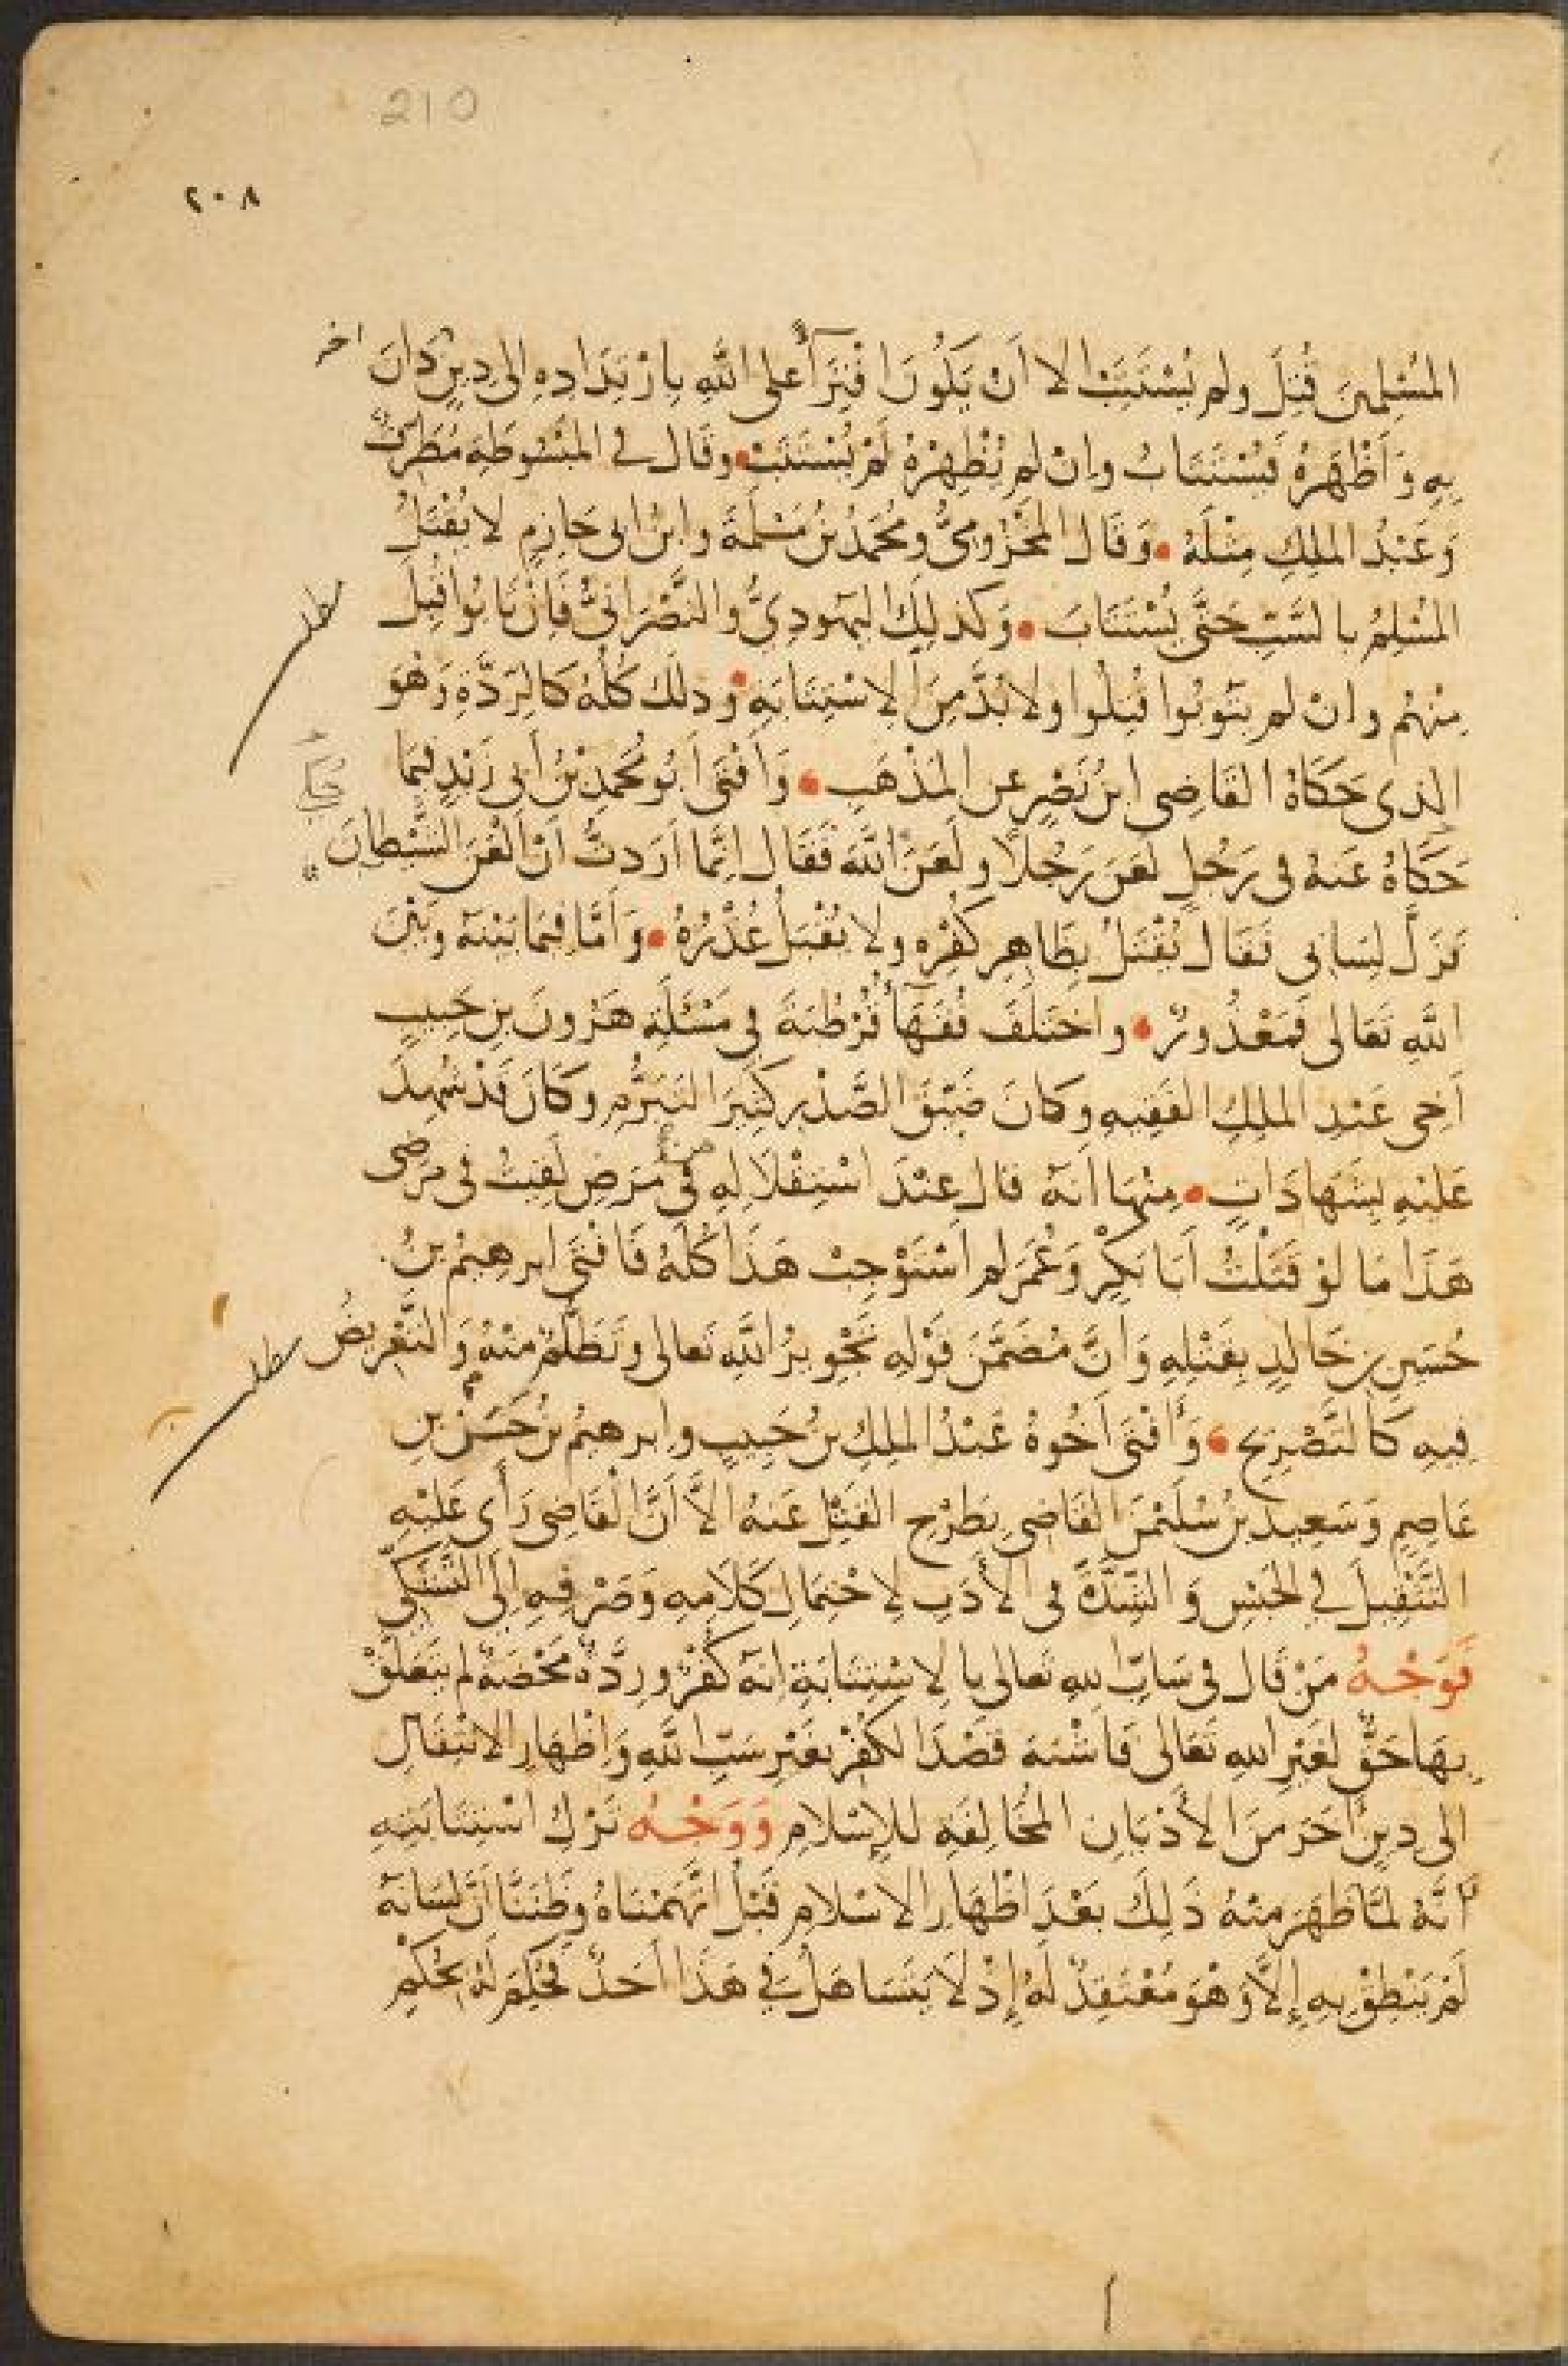 210
٢٠٨
المُسْلِمِينَ قُتِلَ ولم يُسْتَتَبْ الا اَنْ يَكُونَ افْتِرَآءً على اللَّهِ بِارْتِدَادِهِ الى دِينٍ دَانَ
اخر
بِهِ وَاَظْهَرَهُ فَيُسْتَتَابُ وانْ لم يُظْهِرْهُ لَمْ يُسْتَتَبْ وقَالَ في المَبْسُوطَةِ مُطَرِّفٌ
وَعَبْدُ المَلِكِ مِثْلَهُ وَقَالَ المَخْزُومِيُّ ومُحَمَّدُ بْنُ مَسْلَمَةَ وابْنُ ابى حَازِمٍ لا يُقْتَلُ
المُسْلِمُ بالسَّبِّ حَتَّى يُسْتَتَابَ وَكَذلِكَ اليَهُودِيُّ والنَّصْرَانِىُّ فَاِنْ تَابُوا قُبِلَ
مِنْهُم وانْ لم يَتُوبُوا قُتِلُوا ولا بُدَّ مِنَ الاِسْتِتَابَةِ وذلك كُلُّهُ كَالرِّدَّةِ وَهُوَ
الذى حَكَاهُ القَاضِى ابنُ نَصْرٍ عن المَذْهَبِ وَاَفْتَى اَبُو مُحَمَّدِ بْنُ اَبِى زَيْدٍ فِيمَا
حُكِىَ
حَكَاهُ عَنهُ فى رَجُلٍ لَعَنَ رَجُلاً ولَعَنَ اللَّهَ فَقَالَ اِنَّمَا اَرَدتُ اَنْ اَلْعَنَ الشَّيْطَانَ
فَزَلَّ لِسَانِى فَقَالَ يُقْتَلُ بِظَاهِرِ كُفْرِهِ ولا يُقْبَلُ عُذْرُهُ وَاَمَّا فِيمَا بَيْنَهُ وبَيْنَ
اللَّهِ تَعَالى فَمَعْذُورٌ واختَلَفَ فُقَهَآءُ قُرْطُبَةَ فِى مَسْئَلَةِ هَرُونَ بنِ حَبِيبٍ
اَخِى عَبْدِ المَلِكِ الفَقِيهِ وكَانَ ضَيِّقَ الصَّدْرِ كَثِيرَ التَبَرُّمِ وكَانَ قَدْ شُهِدَ
عَلَيْهِ بِشَهَادَاتٍ مِنْهَا انَّهُ قال عِنْدَ اسْتِقْلَالِهِ مِنْ مَرَضٍ لَقِيتُ فى مَرَضِى
هَذَا مَا لَوْ قَتَلْتُ اَبَا بَكْرٍ وَعُمَرَ لم اَسْتَوْجِبْ هَذَا كُلَّهُ فَافْتَى ابرهِيمُ بنُ
حُسَينِ بنِ خَالِدٍ بِقَتْلِهِ وَاَنَّ مُضَمَّنَ قَوْلِهِ تَجْوِيرُ اللَّهِ تعالى وتَظَلُّمٌ مِنْهُ وَالتَّعْرِيضُ
فِيهِ كَالتَّصْرِيحِ وَأَفْتَى اَخُوهُ عَبْدُ المَلِكِ بنُ حَبِيبٍ وابرهيمُ بنُ حُسَيْنِ بنِ
عَاصِمٍ وَسَعِيدُ بنُ سُلَيْمٰنَ القَاضِى بِطَرْحِ القَتْلِ عَنهُ الاَّ اَنَّ القَاضِى رَأَى عَلَيْهِ
التَّثْقِيلَ فِى الحَبْسِ وَ الشِّدَّةَ فى الأَدَبِ لِاحْتِمَالِ كَلَامِهِ وَصَرْفِهِ اِلَى التَّشَكِّى
فَوَجْهُ مَنْ قَالَ فى سَابِّ اللهِ تعالى بالاِسْتِتَابَةِ انهُ كُفْرٌ ورِدَّةٌ مَحْضَةٌ لم يَتَعَلَّقْ
بِهَا حَقٌّ لِغَيْرِ اللهِ تَعَالى فَاشْبَهَ قَصْدَ الكُفْرِ بِغَيْرِ سَبِّ اللَّهِ وَاِظْهَارِ الانْتِقَالِ
الى دِينٍ آخَرَ مِنَ الأَدْيَانِ المُخَالِفَةِ للاِسْلَامِ وَوَجْهُ تَرْكِ اسْتِتَابَتِهِ
أَنَّهُ لَمَّا ظَهَرَ مِنْهُ ذَلِكَ بَعْدَ اِظْهَارِ الاسْلامِ قَبْلُ اتَّهَمْنَاهُ وظَنَنَّا اَنَّ لِسَانَهُ
لَمْ يَنْطِقْ بِهِ إِلَّا وَهُوَ مُعْتَقِدٌ لَهُ إِذْ لَا يَتَسَاهَلُ فِى هَذَا اَحَدٌ فَحُكِمَ لَهُ بِحُكْمِ